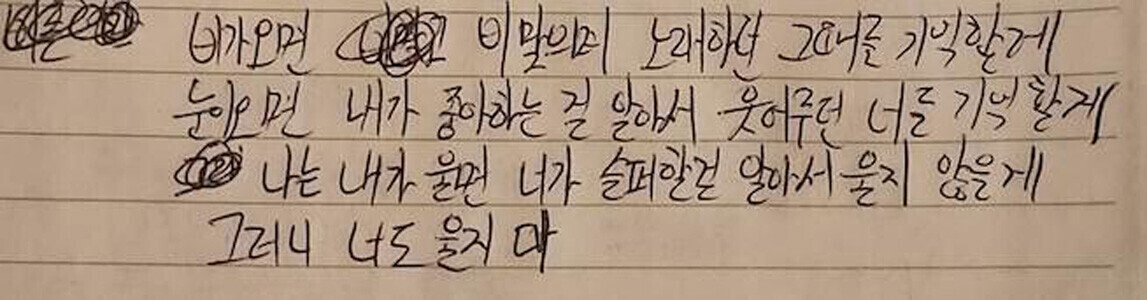 비가오면 비 맞으며 노래하던 그때를 기억할게
눈이오면 내가 좋아하는 걸 알아서 웃어주던 너를 기억할게
나는 내가 울면 너가 슬퍼할걸 알아서 울지 않을게
그러니 너도 울지 마